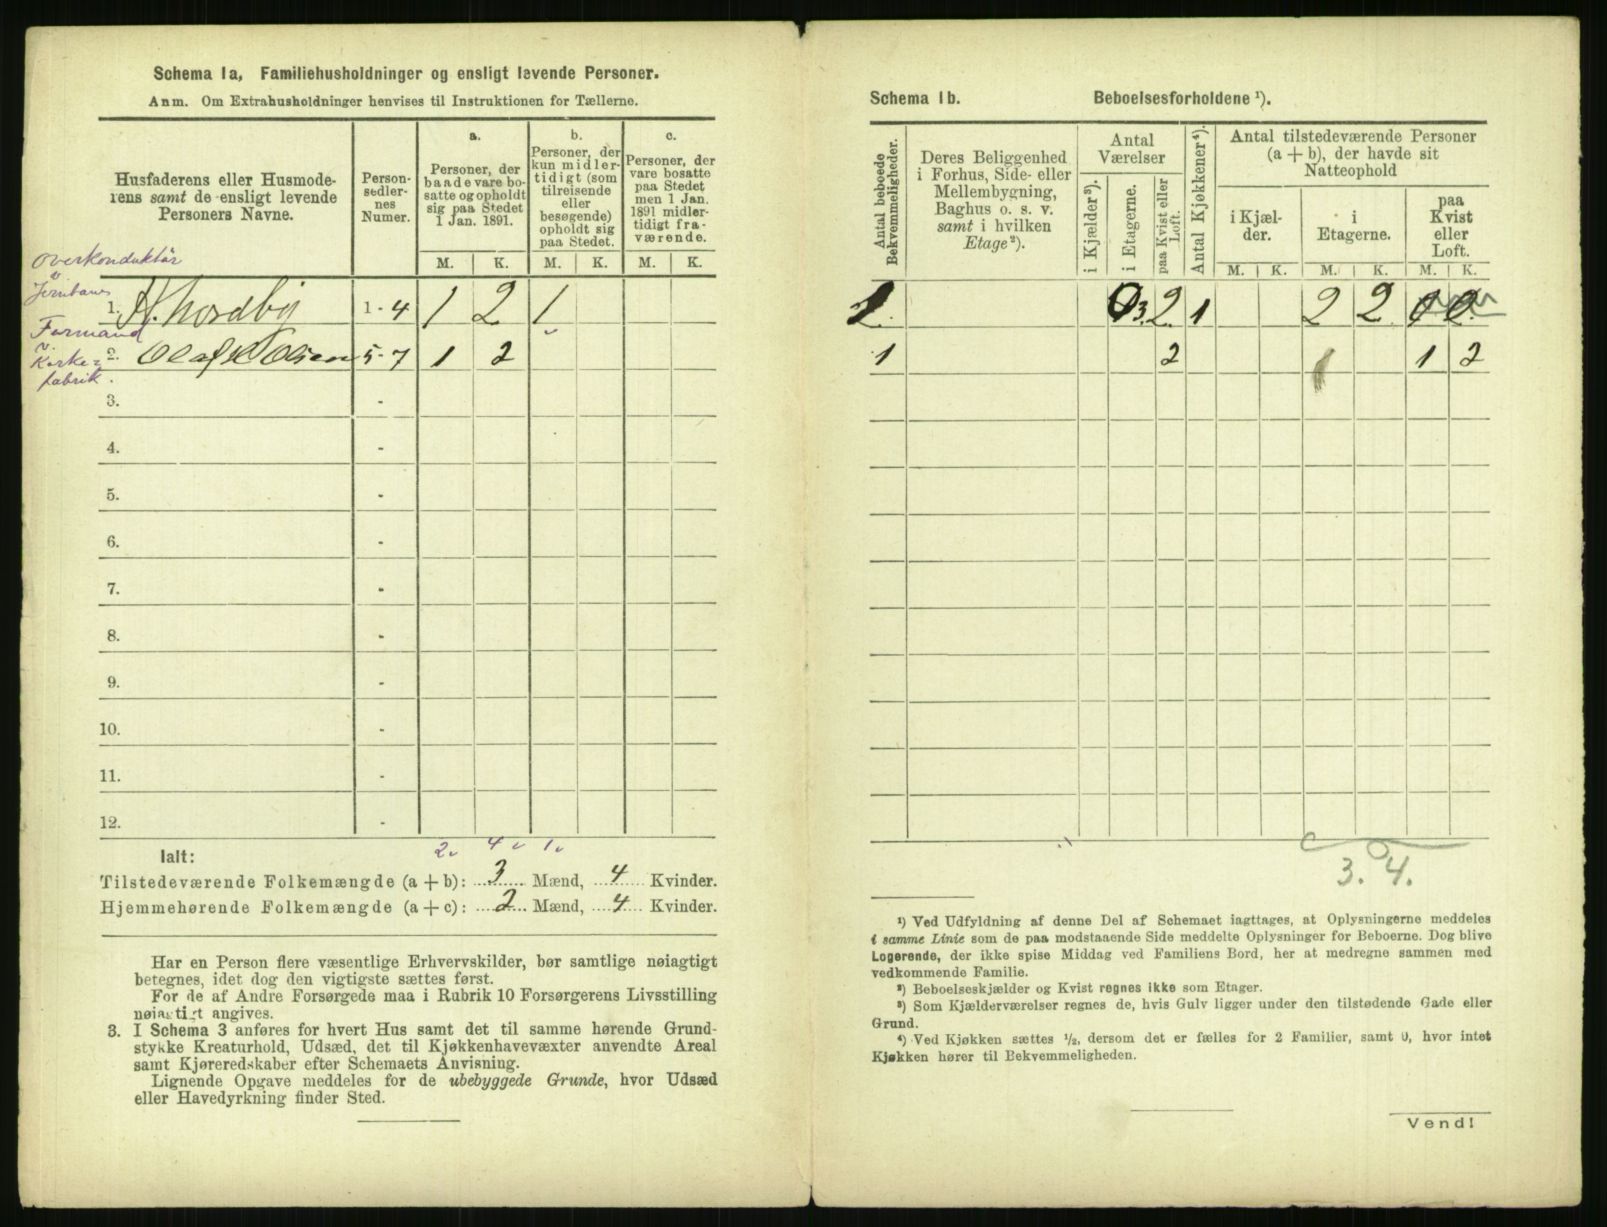 Schema 1a, Familiehusholdninger og ensligt levende Personer.
Anm. Om Extrahusholdninger henvises til Instruktionen for Tællerne.
Husfaderens eller Husmode-
rens samt de ensligt levende
Personers Navne.
Person-
sedler-
nes
Numer.
a.
Personer, der
baade vare bo-
satte og opholdt
sig paa Stedet
1 Jan. 1891.
b.
Personer, der
kun midler-
tidigt (som
tilreisende
eller
besøgende)
opholdt sig
paa Stedet.
c.
Personer, der
vare bosatte
paa Stedet
men 1 Jan.
1891 midler-
tidigt fra-
værende.
M. K. M. K. M. K.
Overkonduktør
v.
Jernbane
1. H. Nordby 1-4 1 2 1
Formand
v.
Korke-
fabrik.
2. Olaf Olsen 5-7 1 2
3. -
4. -
5. -
6. -
7. -
8. -
9. -
10. -
11. -
12. -
2 4 1
Ialt:
Tilstedeværende Folkemængde (a + b): 3 Mænd, 4 Kvinder.
Hjemmehørende Folkemængde (a + c): 2 Mænd, 4 Kvinder.
Har en Person flere væsentlige Erhvervskilder, bør samtlige nøiagtigt
betegnes, idet dog den vigtigste sættes først.
For de af Andre Forsørgede maa i Rubrik 10 Forsørgerens Livsstilling
nøiagtigt angives.
3. I Schema 3 anføres for hvert Hus samt det til samme hørende Grund-
stykke Kreaturhold, Udsæd, det til Kjøkkenhavevæxter anvendte Areal
samt Kjøreredskaber efter Schemaets Anvisning.
Lignende Opgave meddeles for de ubebyggede Grunde, hvor Udsæd
eller Havedyrkning finder Sted.
Schema 1b. Beboelsesforholdene ¹).
Antal beboede
Bekvemmeligheder.
Deres Beliggenhed
i Forhus, Side- eller
Mellembygning,
Baghus o. s. v.
samt i hvilken
Etage²).
Antal
Værelser
i Kjælder³).
i Etagerne.
paa Kvist eller
Loft.
Antal Kjøkkener⁴).
Antal tilstedeværende Personer
(a + b), der havde sit
Natteophold
i Kjæl-
der.
i
Etagerne.
paa
Kvist
eller
Loft.
M. K. M. K. M. K.
3. 2. 1 2 2
1 2 1 2
3. 4.
¹) Ved Udfyldning af denne Del af Schemaet iagttages, at Oplysningerne meddeles
i samme Linie som de paa modstaaende Side meddelte Oplysninger for Beboerne. Dog blive
Logerende, der ikke spise Middag ved Familiens Bord, her at medregne sammen med
vedkommende Familie.
²) Beboelseskjælder og Kvist regnes ikke som Etager.
³) Som Kjælderværelser regnes de, hvis Gulv ligger under den tilstødende Gade eller
Grund.
⁴) Ved Kjøkken sættes ½, dersom det er fælles for 2 Familier, samt 0, hvor intet
Kjøkken hører til Bekvemmeligheden.
Vend!